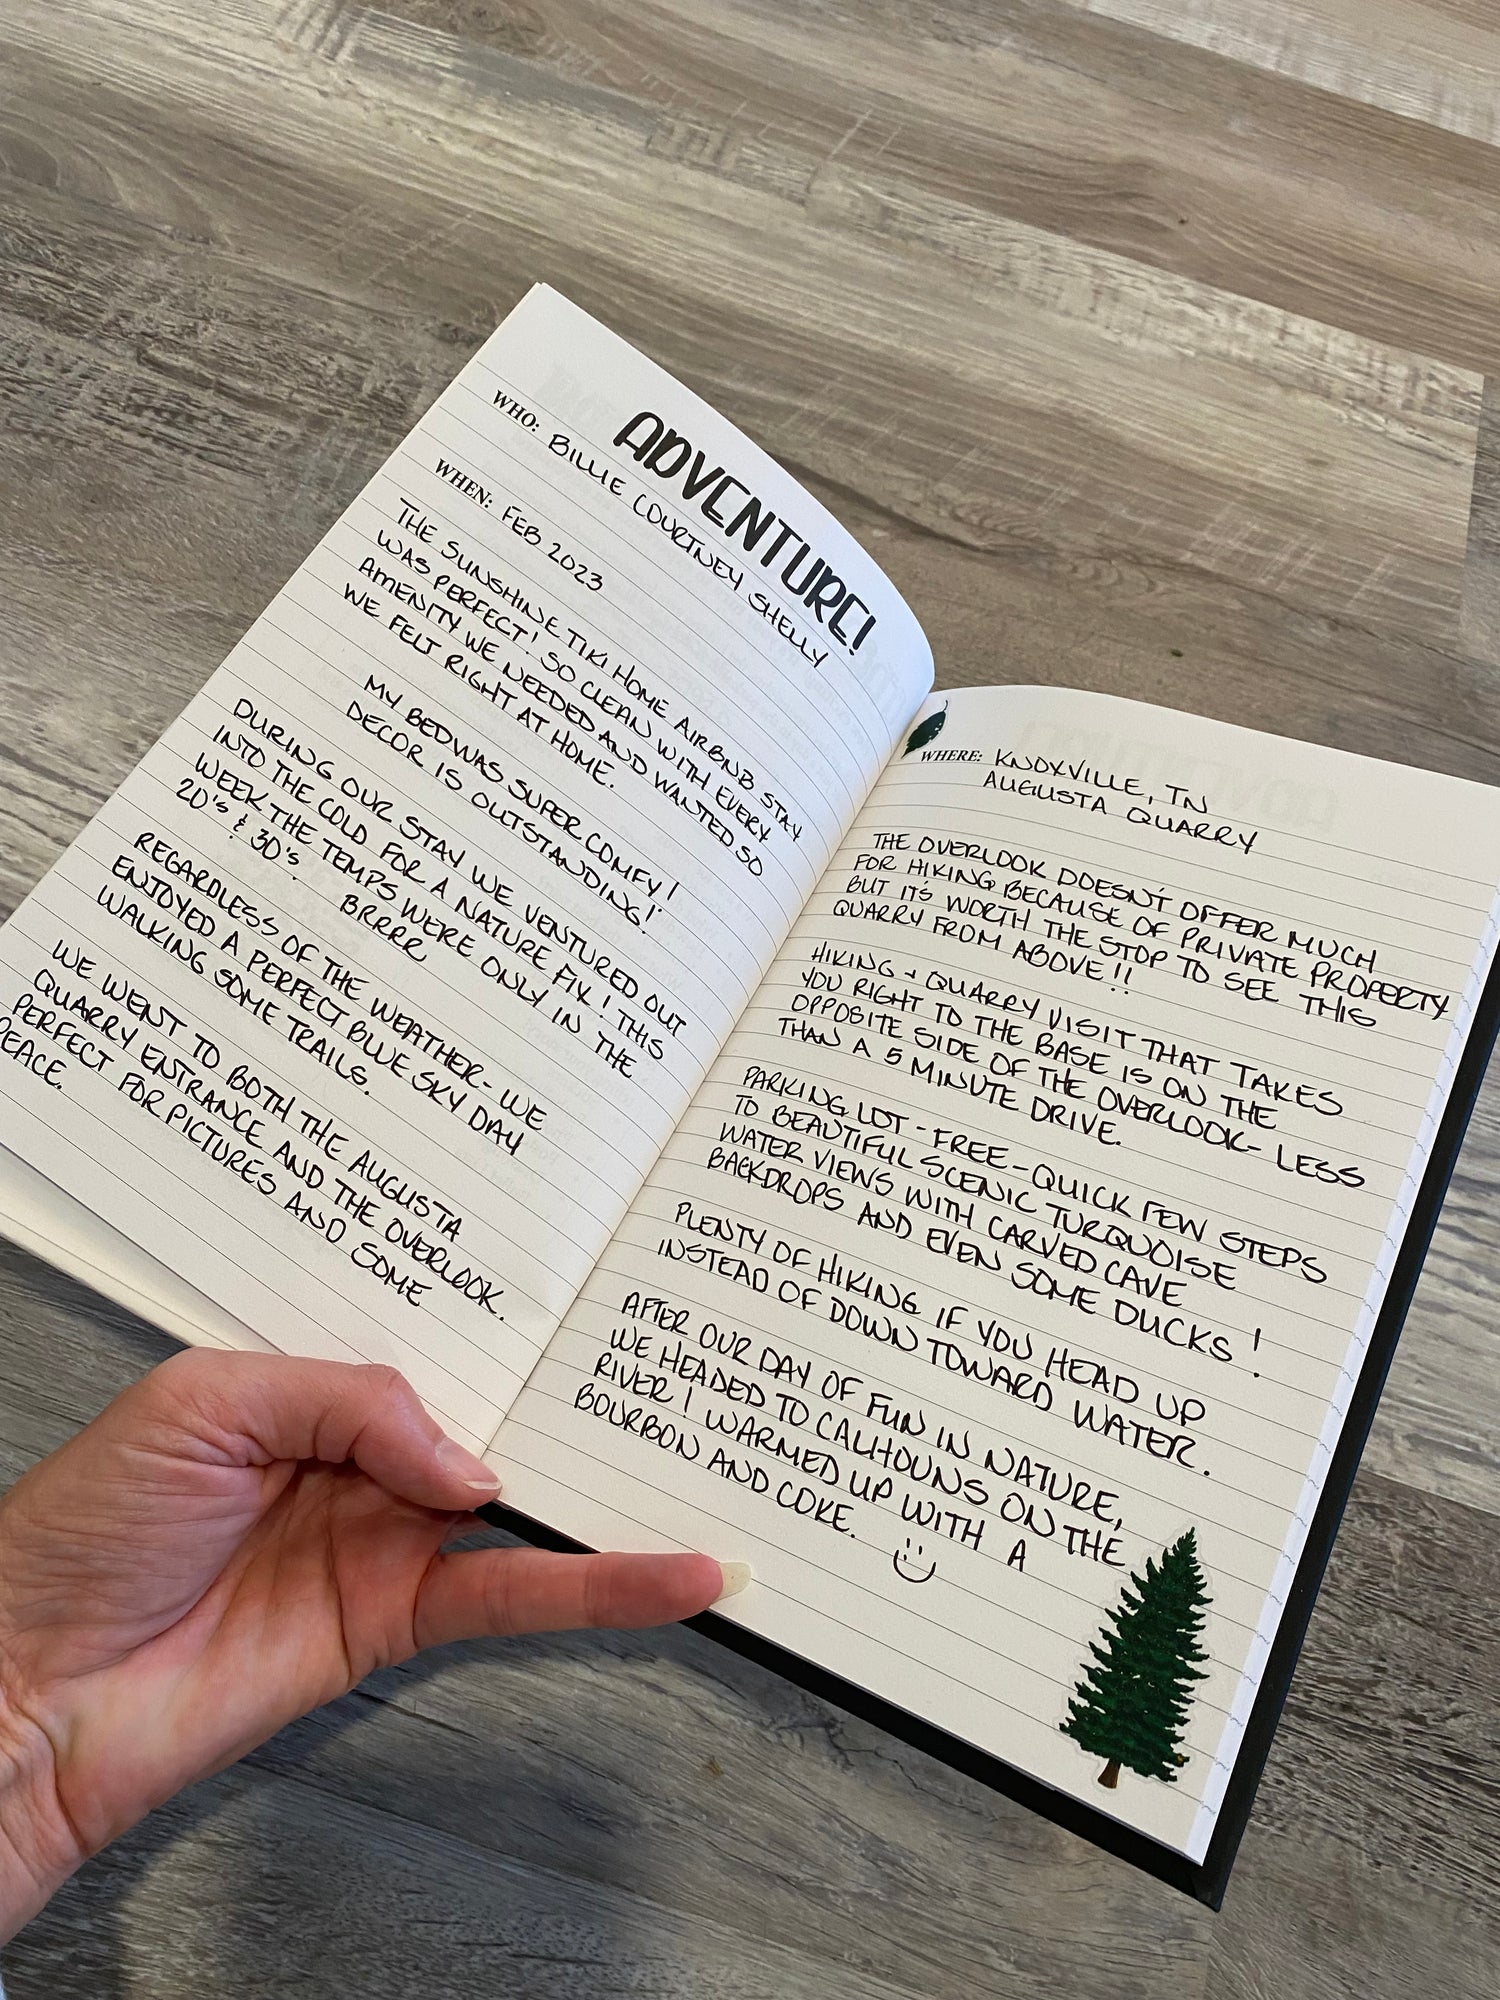 ADVENTURE!
WHO: BILLIE COURTNEY SHELLY
WHEN: FEB 2023
THE SUNSHINE TIKI HOME AIRBNB STAY
WAS PERFECT! SO CLEAN WITH EVERY
AMENITY WE NEEDED AND WANTED SO
WE FELT RIGHT AT HOME.
MY BED WAS SUPER COMFY!
DECOR IS OUTSTANDING!
DURING OUR STAY WE VENTURED OUT
INTO THE COLD FOR A NATURE FIX! THIS
WEEK THE TEMPS WERE ONLY IN THE
20's & 30's. BRRRR
REGARDLESS OF THE WEATHER- WE
ENJOYED A PERFECT BLUE SKY DAY
WALKING SOME TRAILS.
WE WENT TO BOTH THE AUGUSTA
QUARRY ENTRANCE AND THE OVERLOOK.
PERFECT FOR PICTURES AND SOME
PEACE.
WHERE: KNOXVILLE, TN
AUGUSTA QUARRY
THE OVERLOOK DOESN'T OFFER MUCH
FOR HIKING BECAUSE OF PRIVATE PROPERTY
BUT IT'S WORTH THE STOP TO SEE THIS
QUARRY FROM ABOVE!!
HIKING + QUARRY VISIT THAT TAKES
YOU RIGHT TO THE BASE IS ON THE
OPPOSITE SIDE OF THE OVERLOOK- LESS
THAN A 5 MINUTE DRIVE.
PARKING LOT - FREE - QUICK FEW STEPS
TO BEAUTIFUL SCENIC TURQUOISE
WATER VIEWS WITH CARVED CAVE
BACKDROPS AND EVEN SOME DUCKS!
PLENTY OF HIKING IF YOU HEAD UP
INSTEAD OF DOWN TOWARD WATER.
AFTER OUR DAY OF FUN IN NATURE,
WE HEADED TO CALHOUNS ON THE
RIVER! WARMED UP WITH A
BOURBON AND COKE.